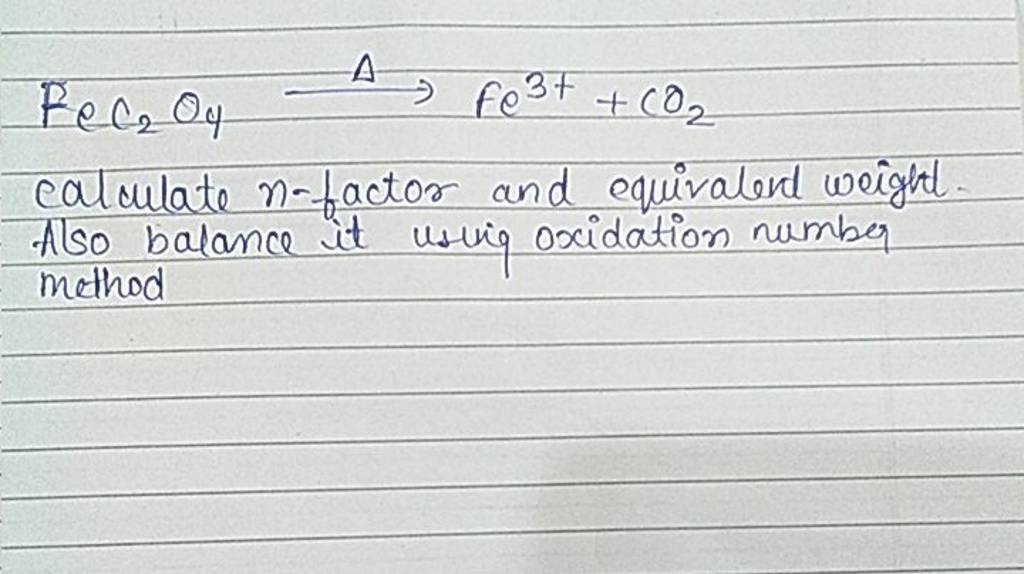 FeC₂O₄ —Δ→ Fe³⁺ + CO₂
calculate n-factor and equivalent weight.
Also balance it using oxidation number
method